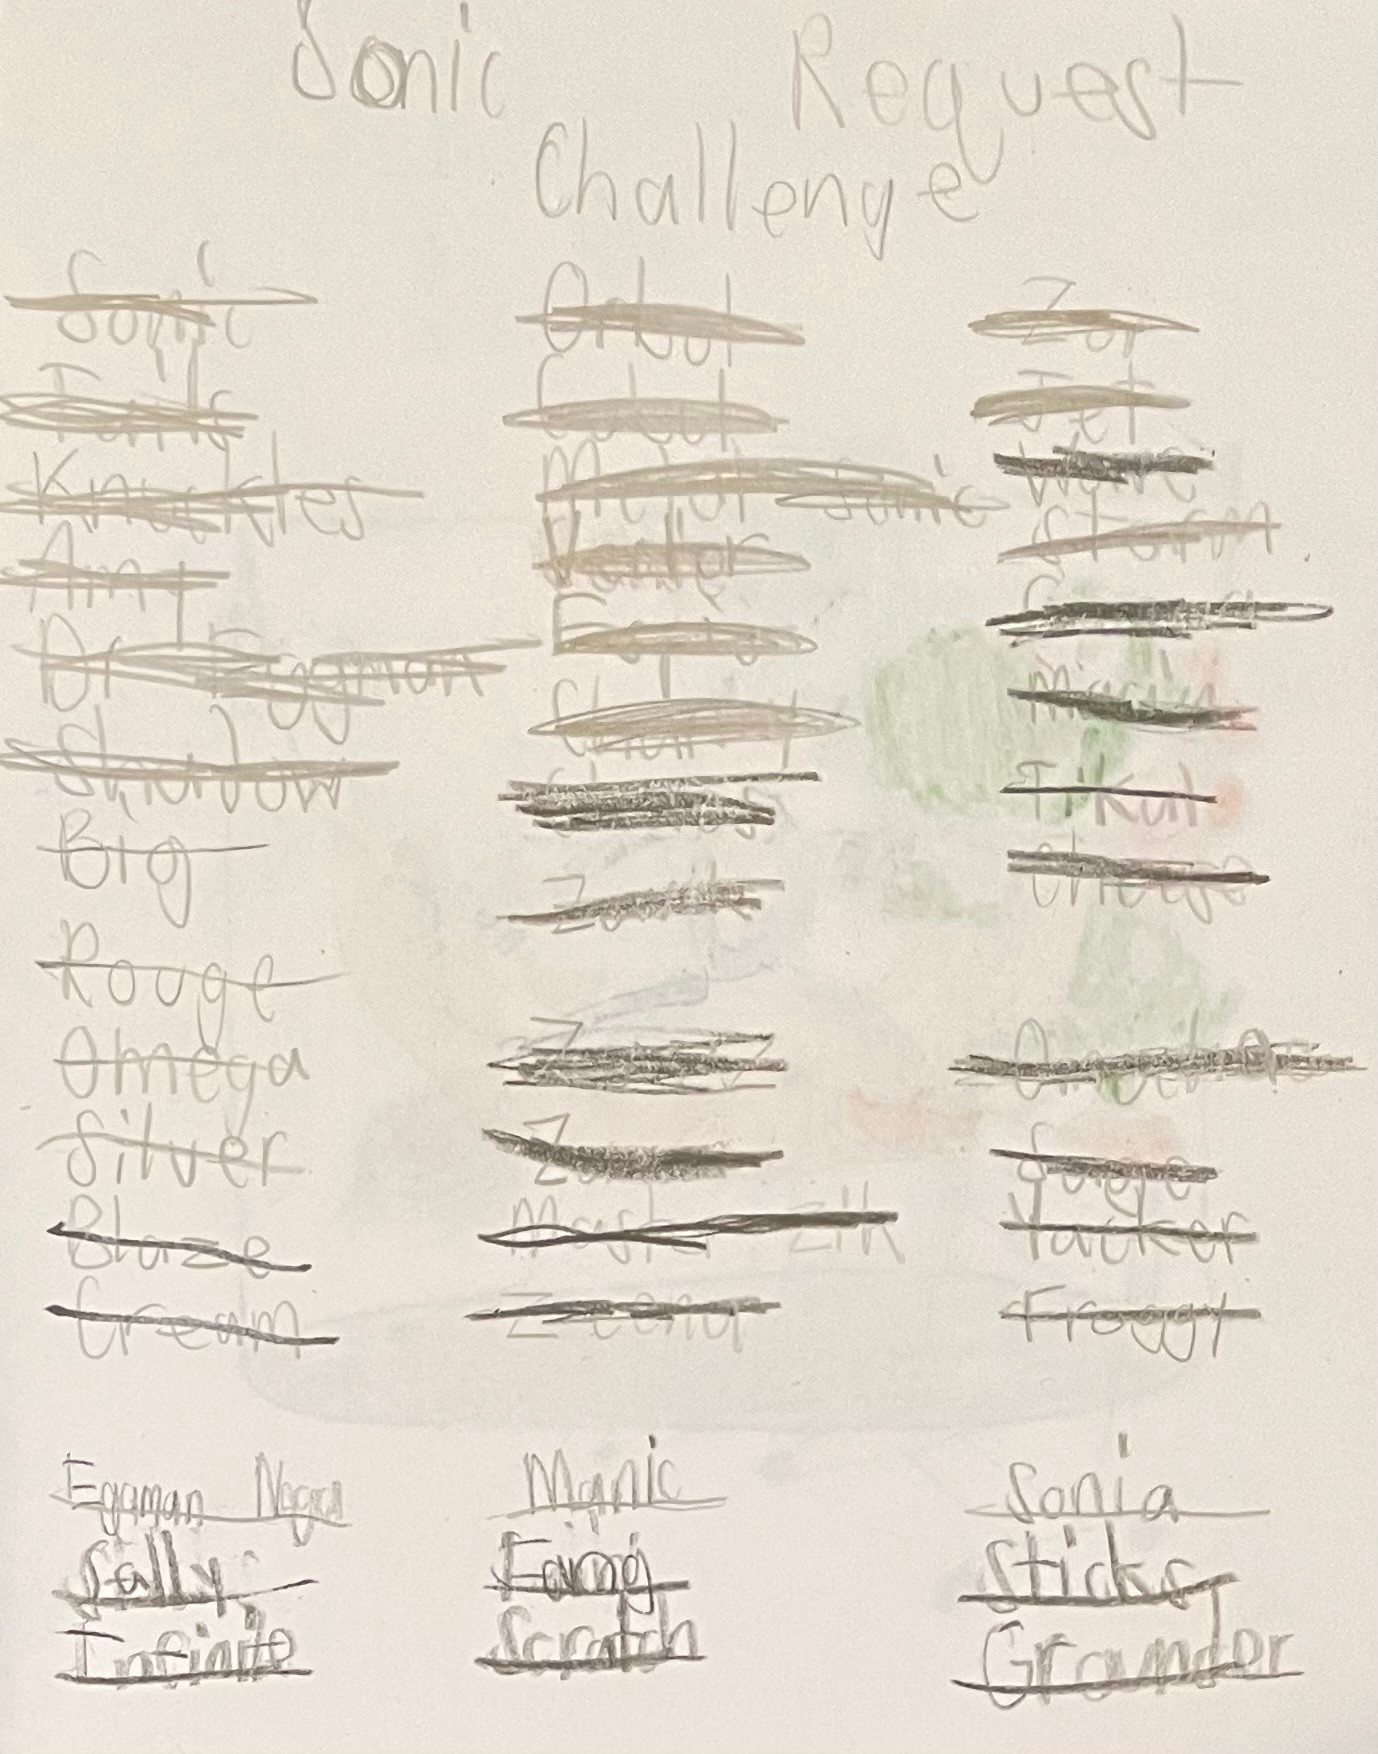 Sonic Request
Challenge
Sonic
Tails
Knuckles
Amy
Dr. Eggman
Shadow
Big
Rouge
Omega
Silver
Blaze
Cream
Orbot
Cubot
Metal Sonic
Vector
Espio
Charmy
Master Zik
Zeena
Jet
Wave
Storm
Tikal
Chaos
Sage
Yacker
Froggy
Eggman Nega
Sally
Infinite
Manic
Fang
Scratch
Sonia
Sticks
Grounder